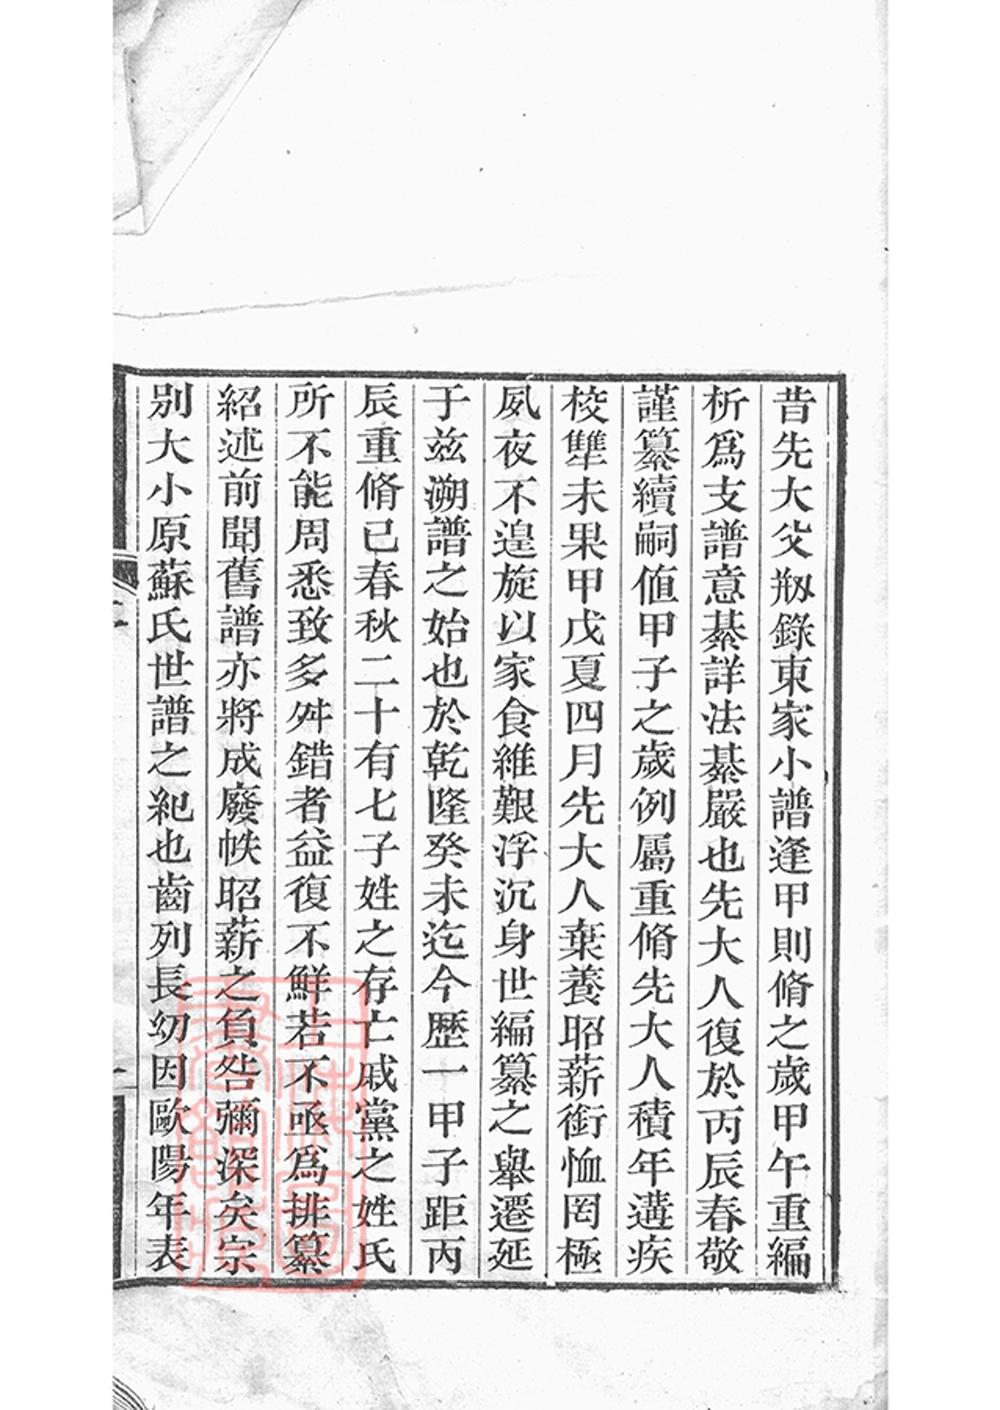 昔先大父刱錄東家小譜逢甲則脩之歲甲午重編
析爲支譜意綦詳法綦嚴也先大人復於丙辰春敬
謹纂續嗣値甲子之歲例屬重脩先大人積年遘疾
校讐未果甲戊夏四月先大人棄養昭薪銜恤罔極
夙夜不遑旋以家食維艱浮沉身世編纂之舉遷延
于兹溯譜之始也於乾隆癸未迄今歷一甲子距丙
辰重脩已春秋二十有七子姓之存亡戚黨之姓氏
所不能周悉致多舛錯者益復不鮮若不亟爲排纂
紹述前聞舊譜亦將成廢帙昭薪之負咎彌深矣宗
別大小原蘇氏世譜之紀也齒列長幼因歐陽年表